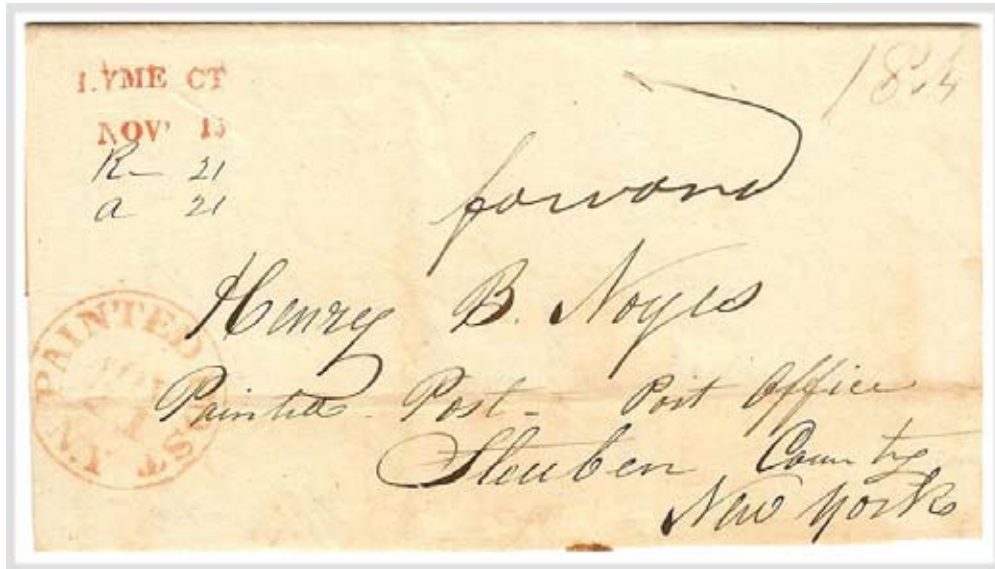 LYME CT
NOV' 15
R— 21
a 21
forward
Henry B. Noyes
Painted - Post - Post Office
Steuben County
New York
PAINTED POST N.Y.